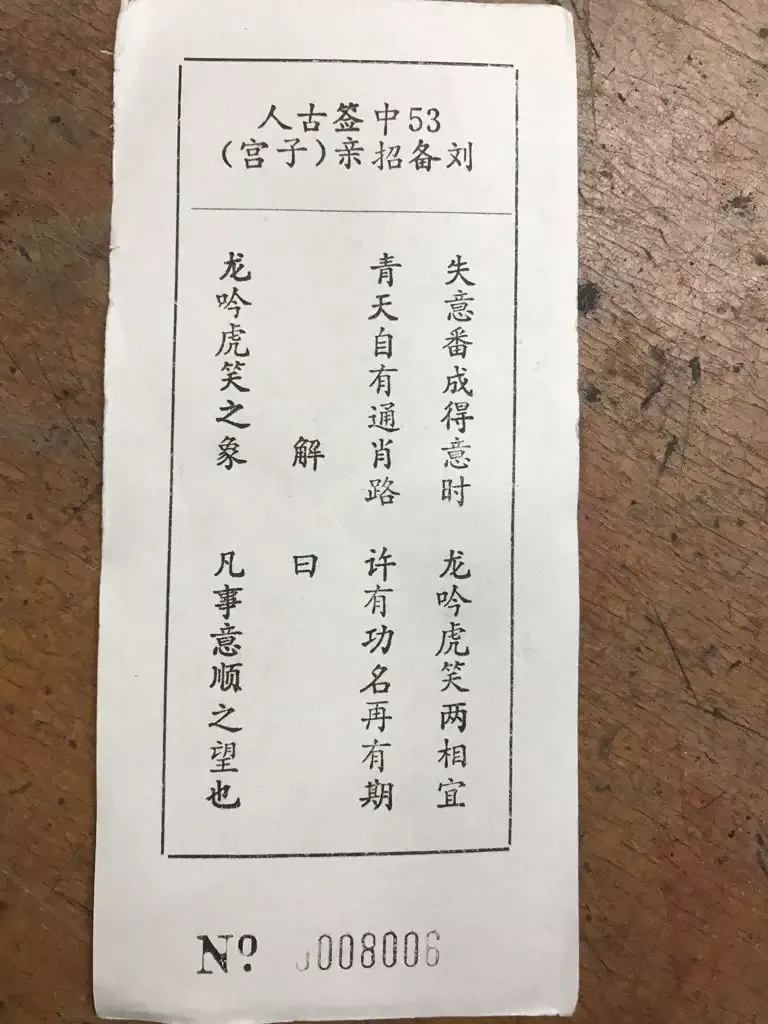 53中签古人
刘备招亲(子宫)
失意番成得意时 龙吟虎笑两相宜
青天自有通肖路 许有功名再有期
解 曰
龙吟虎笑之象 凡事意顺之望也
Nº 0008006